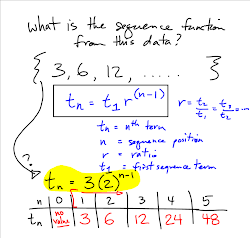 What is the sequence function
from this data?
{ 3, 6, 12, ..... }
tₙ = t₁ r⁽ⁿ⁻¹⁾
r = t₂/t₁ = t₃/t₂ = ...
tₙ = nᵗʰ term
n = sequence position
r = ratio
t₁ = first sequence term
?
tₙ = 3(2)ⁿ⁻¹
n 0 1 2 3 4 5
tₙ no value 3 6 12 24 48